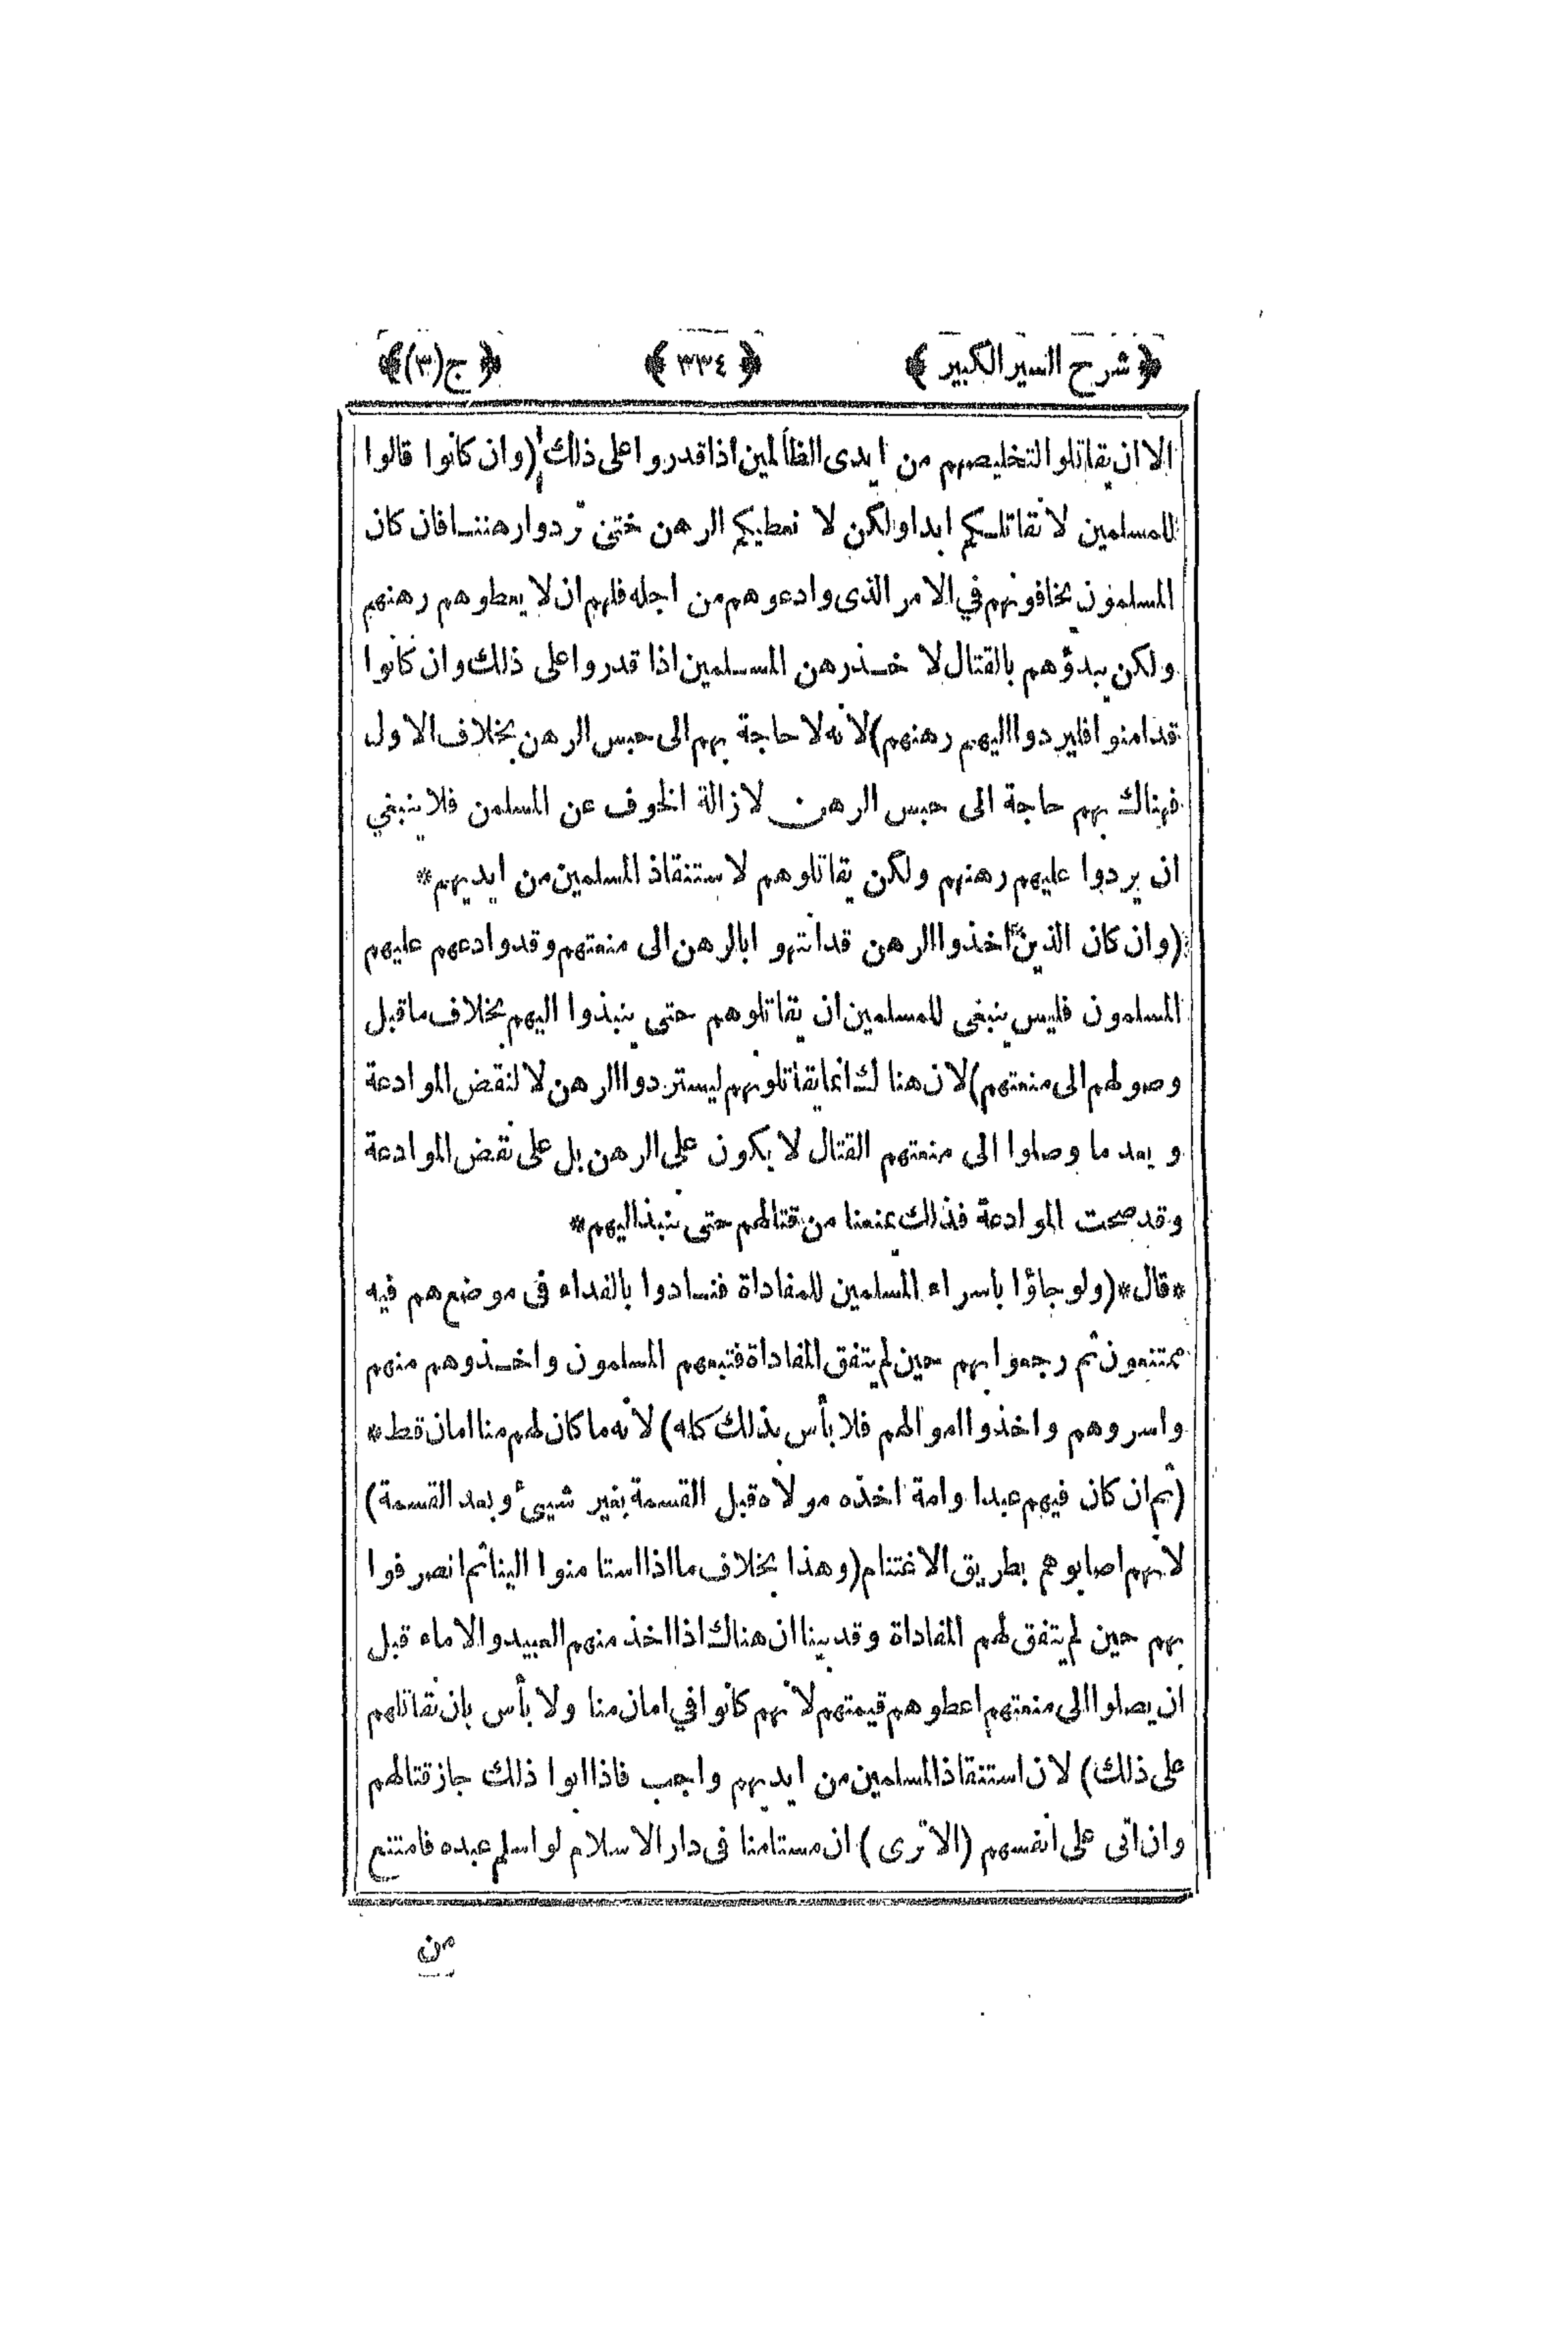 ﴿ شرح السير الكبير ﴾ ﴿ ٣٣٤ ﴾ ﴿ ج(٣) ﴾
الا ان يقاتلو التخليصهم من ايدى الظالمين اذا قدروا على ذلك (وان كانوا قالوا
للمسلمين لا نقاتلكم ابدا ولكن لا نعطيكم الرهن حتى تردوا رهننا فان كان
المسلمون يخافونهم في الامر الذى وادعوهم من اجله فلهم ان لا يعطوهم رهنهم
ولكن يبدؤهم بالقتال لا خذرهن المسلمين اذا قدروا على ذلك وان كانوا
قد امنوا فليردوا اليهم رهنهم) لانه لا حاجة بهم الى حبس الرهن بخلاف الاول
فهناك بهم حاجة الى حبس الرهن لازالة الخوف عن المسلمن فلا ينبغي
ان يردوا عليهم رهنهم ولكن يقاتلوهم لاستنقاذ المسلمين من ايديهم*
(وان كان الذين اخذوا الرهن قد انتهوا بالرهن الى منعتهم وقد وادعهم عليهم
المسلمون فليس ينبغى للمسلمين ان يقاتلوهم حتى ينبذوا اليهم بخلاف ما قبل
وصولهم الى منعتهم) لان هنالك انما يقاتلونهم ليستردوا الرهن لا لنقض الموادعة
و بعد ما وصلوا الى منعتهم القتال لا يكون على الرهن بل على نقض الموادعة
وقد صحت الموادعة فذلك يمنعنا من قتالهم حتى ننبذ اليهم*
*قال*(ولو جاؤا باسراء المسلمين للمفاداة فنادوا بالفداء فى موضع هم فيه
ممتنعون ثم رجعوا بهم حين لم يتفق المفاداة فتبعهم المسلمون واخذوهم منهم
واسروهم واخذوا اموالهم فلا بأس بذلك كله) لانه ما كان لهم منا امان قط*
(ثم ان كان فيهم عبدا وامة اخذه مولاه قبل القسمة بغير شيئ وبعد القسمة)
لانهم اصابوهم بطريق الاغتنام (وهذا بخلاف ما اذا استا منوا الينا ثم انصرفوا
بهم حين لم يتفق لهم المفاداة وقد بينا ان هناك اذا اخذ منهم العبيد والاماء قبل
ان يصلوا الى منعتهم اعطوهم قيمتهم لانهم كانوا في امان منا ولا بأس بان نقاتلهم
على ذلك) لان استنقاذ المسلمين من ايديهم واجب فاذا ابوا ذلك جاز قتالهم
وان اتى على انفسهم (الا ترى) ان مستامنا فى دار الاسلام لو اسلم عبده فامتنع
من